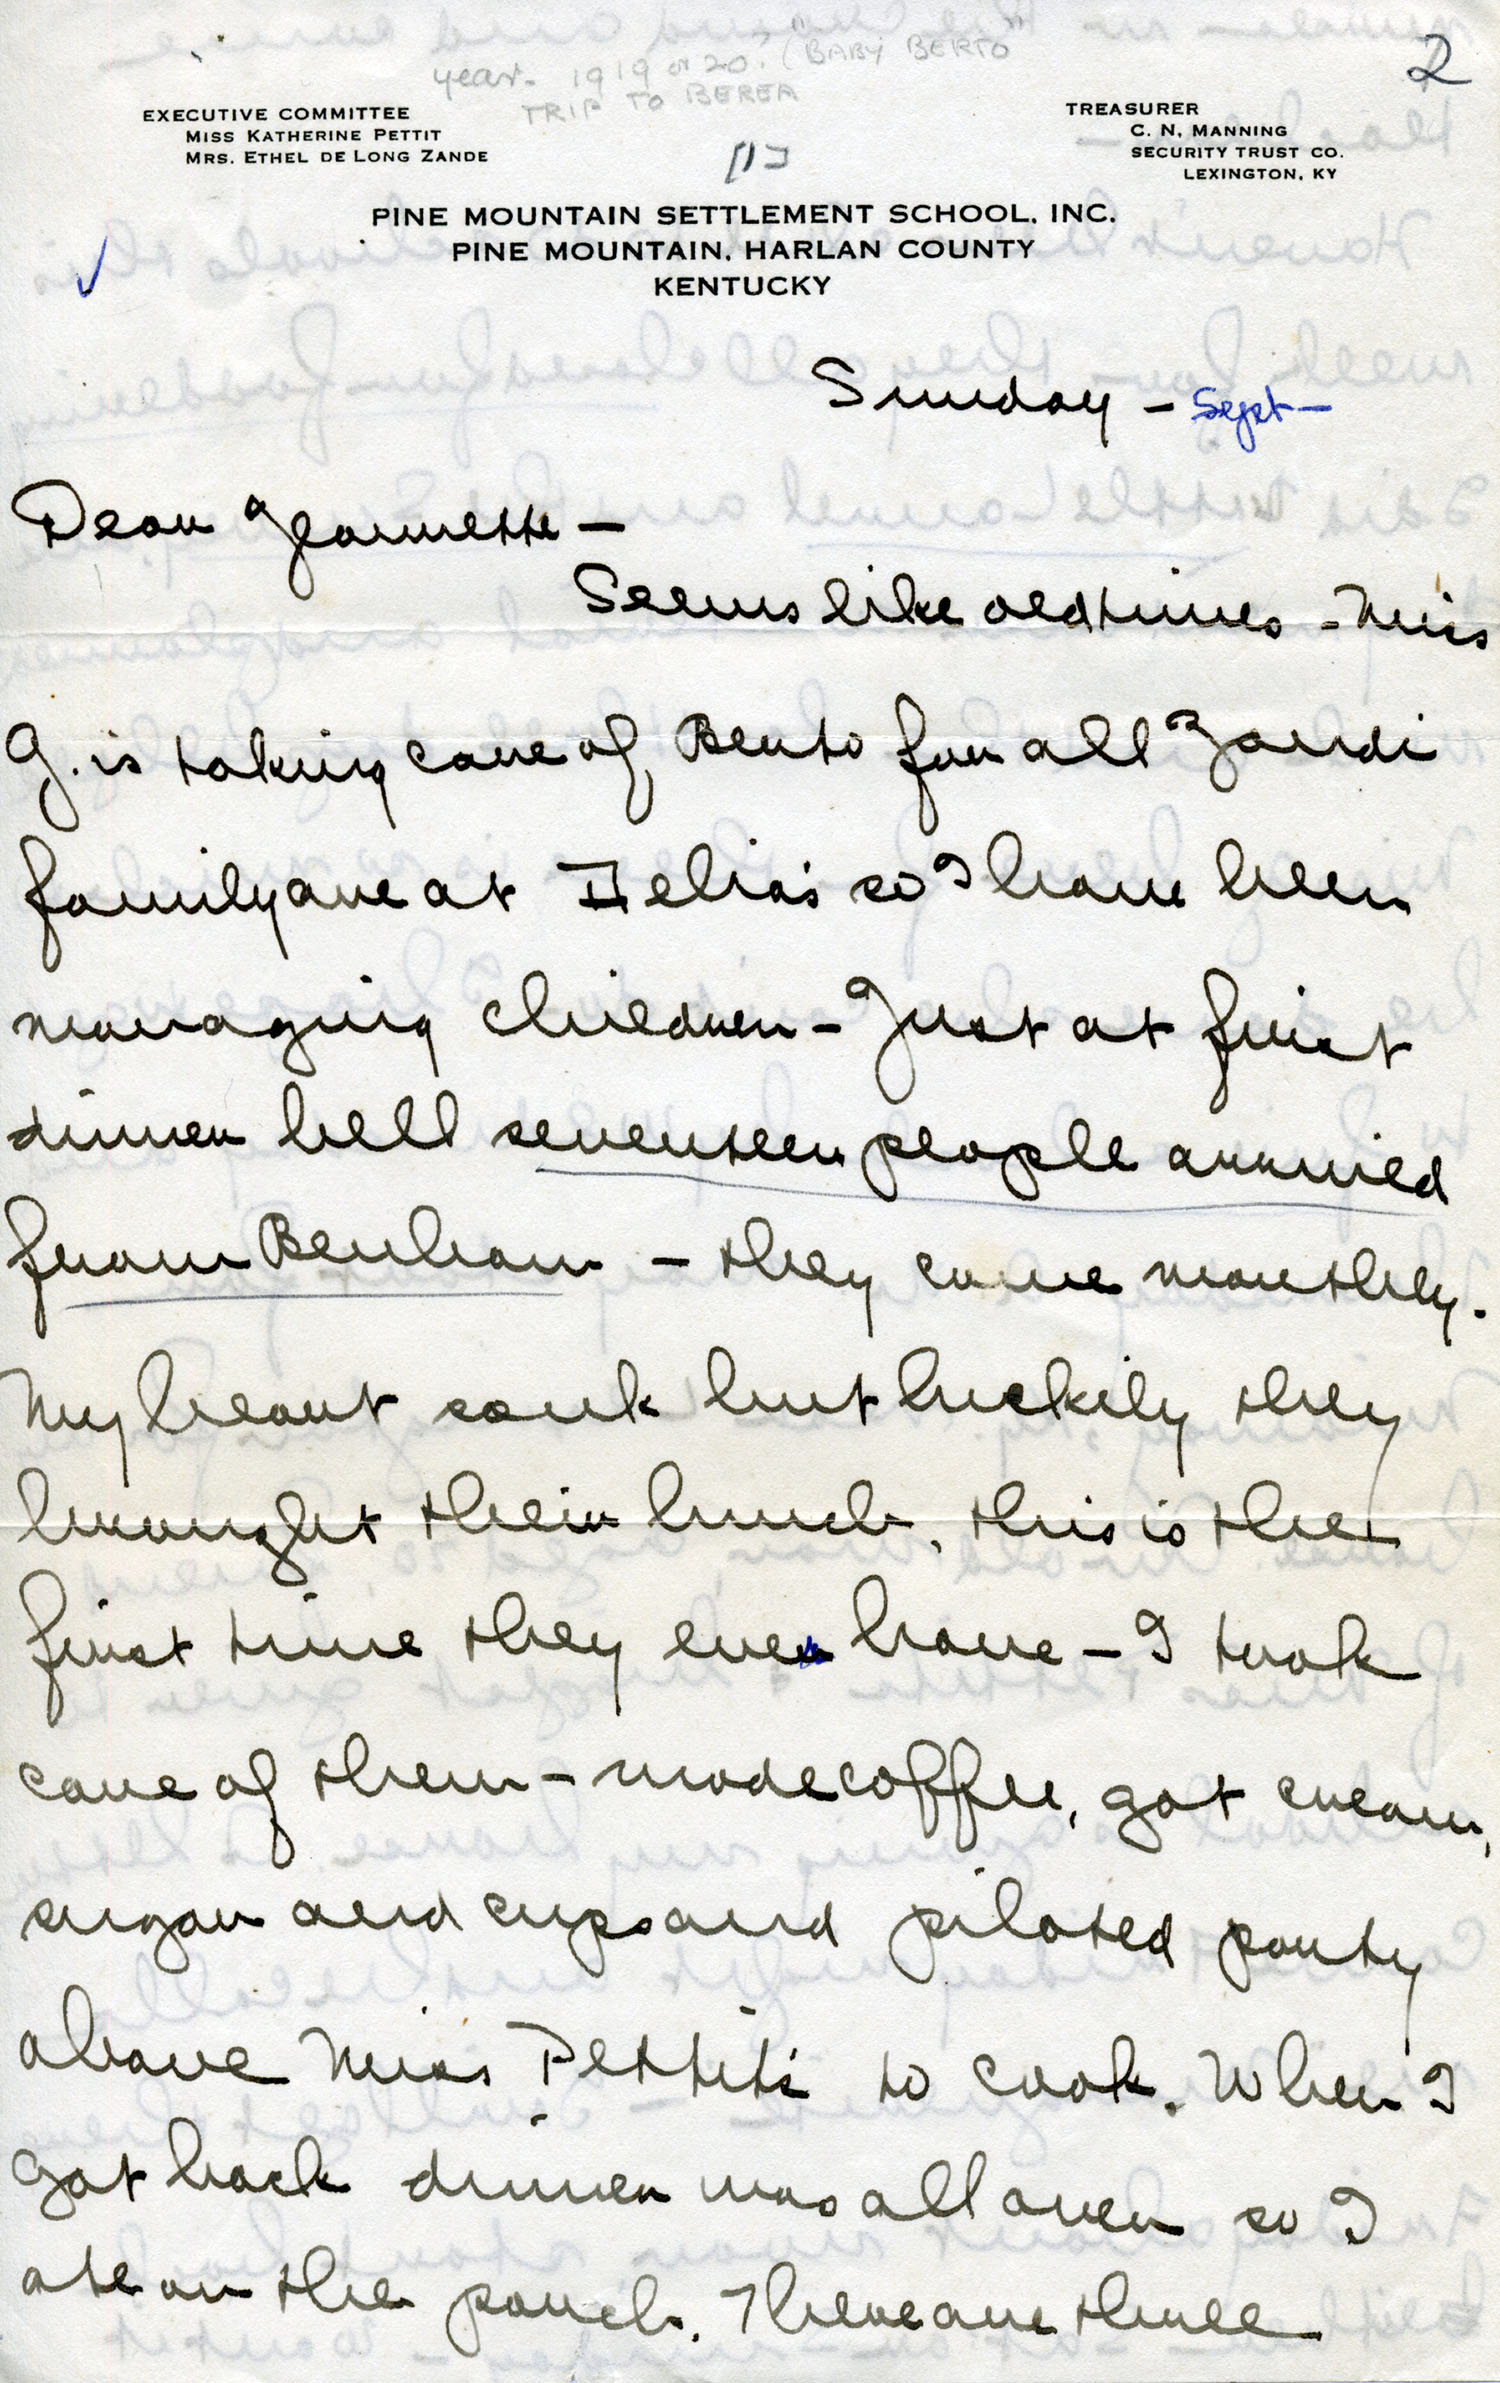 year - 1919 or 20? ("BABY BERTO"
TRIP TO BEREA
2
EXECUTIVE COMMITTEE
MISS KATHERINE PETTIT
MRS. ETHEL DE LONG ZANDE
TREASURER
C. N. MANNING
SECURITY TRUST CO.
LEXINGTON, KY
[1]
PINE MOUNTAIN SETTLEMENT SCHOOL, INC.
PINE MOUNTAIN, HARLAN COUNTY
KENTUCKY
Sunday - Sept -
Dear Jeannette -
Seems like old times - Miss
G. is taking care of Berto for all Zandi
family are at Delia's so I have been
managing children - Just at first
dinner bell seventeen people arrived
from Benham - they come monthly.
My heart sank but luckily they
brought their lunch, this is the
first time they ever have - I took
care of them - made coffee, got cream,
sugar and cups and piloted party
above Miss Pettit's to cook. When I
got back dinner was all over so I
ate on the porch. There are three